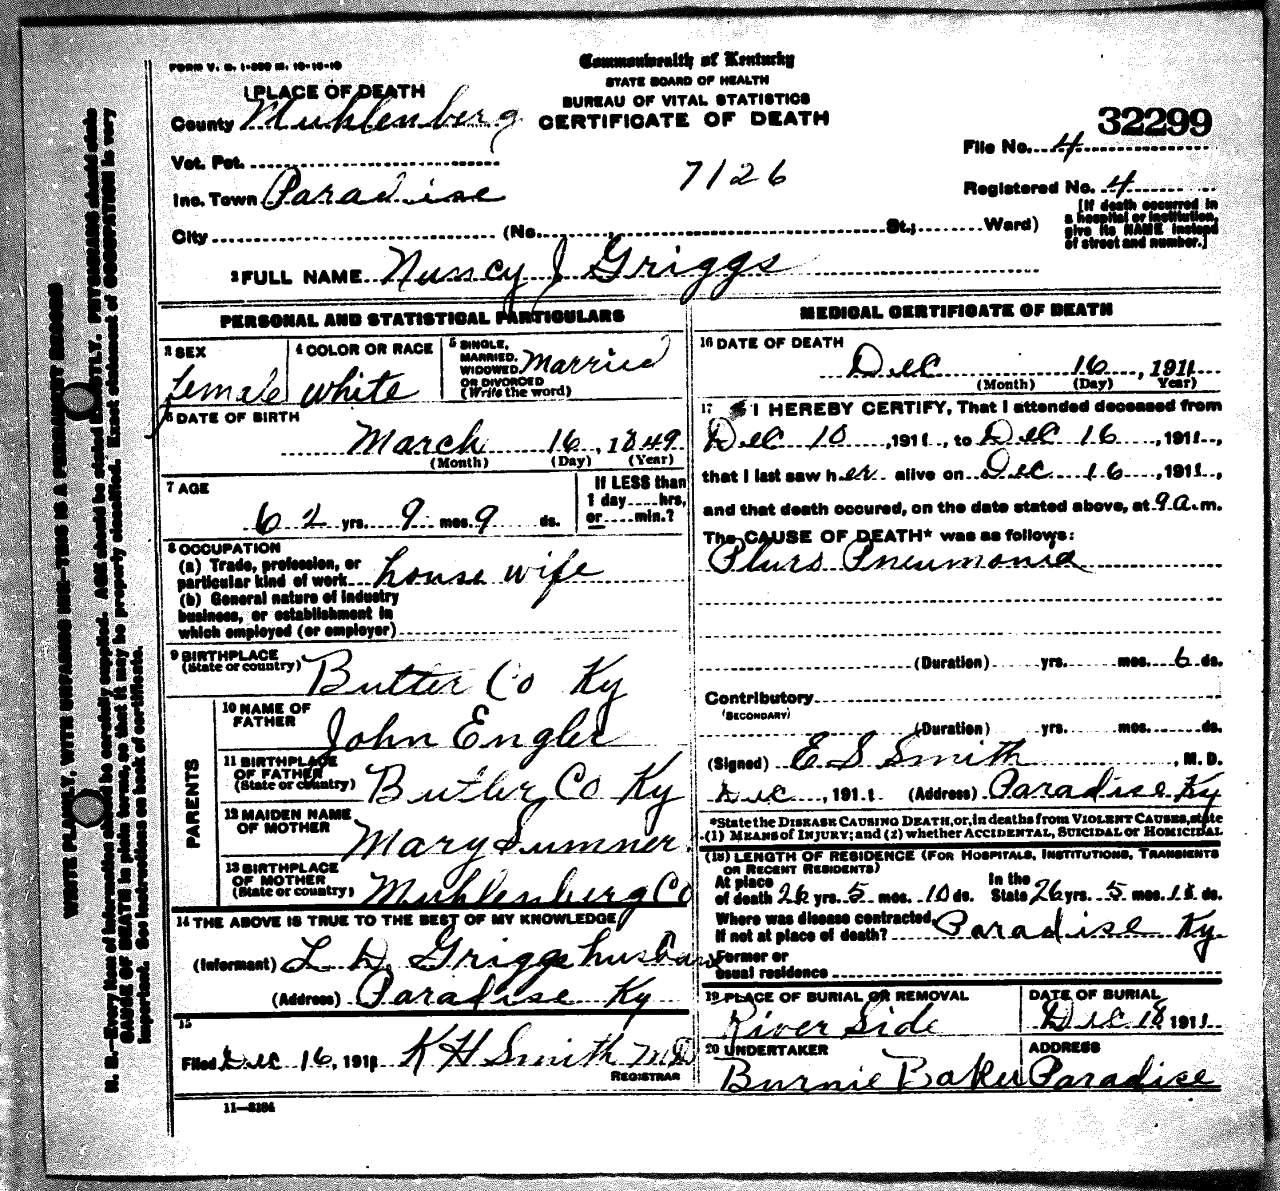 FORM V. S. 1-200 M. 10-10-10
Commonwealth of Kentucky
STATE BOARD OF HEALTH
BUREAU OF VITAL STATISTICS
CERTIFICATE OF DEATH
1 PLACE OF DEATH
County Muhlenberg
Vot. Pct.
Inc. Town Paradise
City (No. St.; Ward)
7126
32299
File No. 4
Registered No. 4
[If death occurred in
a hospital or institution,
give its NAME instead
of street and number.]
2 FULL NAME Nuncy J Griggs
PERSONAL AND STATISTICAL PARTICULARS
3 SEX
female
4 COLOR OR RACE
white
5 SINGLE,
MARRIED,
WIDOWED
OR DIVORCED
(Write the word)
Married
6 DATE OF BIRTH
March 16, 1849
(Month) (Day) (Year)
7 AGE
62 yrs. 9 mos. 9 ds.
If LESS than
1 day hrs.
or min.?
8 OCCUPATION
(a) Trade, profession, or
particular kind of work house wife
(b) General nature of industry
business, or establishment in
which employed (or employer)
9 BIRTHPLACE
(State or country) Butler Co Ky
PARENTS
10 NAME OF
FATHER John Engler
11 BIRTHPLACE
OF FATHER
(State or country) Butler Co Ky
12 MAIDEN NAME
OF MOTHER Mary Sumner
13 BIRTHPLACE
OF MOTHER
(State or country) Muhlenberg Co
14 THE ABOVE IS TRUE TO THE BEST OF MY KNOWLEDGE
(Informant) L D Griggs husband
(Address) Paradise Ky
15
Filed Dec 16, 1911 K H Smith MD
REGISTRAR
11—3184
MEDICAL CERTIFICATE OF DEATH
16 DATE OF DEATH
Dec 16, 1911
(Month) (Day) (Year)
17 I HEREBY CERTIFY, That I attended deceased from
Dec 10, 1911, to Dec 16, 1911,
that I last saw her alive on Dec 16, 1911,
and that death occured, on the date stated above, at 9 a.m.
The CAUSE OF DEATH* was as follows:
Pluro Pneumonia
(Duration) yrs. mos. 6 ds.
Contributory
(SECONDARY)
(Duration) yrs. mos. ds.
(Signed) E S Smith, M. D.
Dec, 1911 (Address) Paradise Ky
*State the DISEASE CAUSING DEATH, or, in deaths from VIOLENT CAUSES, state
(1) MEANS OF INJURY; and (2) whether ACCIDENTAL, SUICIDAL OR HOMICIDAL
(18) LENGTH OF RESIDENCE (FOR HOSPITALS, INSTITUTIONS, TRANSIENTS
OR RECENT RESIDENTS)
At place
of death 26 yrs. 5 mos. 10 ds.
In the
State 26 yrs. 5 mos. ds.
Where was disease contracted,
if not at place of death? Paradise Ky.
Former or
usual residence
19 PLACE OF BURIAL OR REMOVAL
River Side
DATE OF BURIAL
Dec 18 1911
20 UNDERTAKER
Burnie Baker
ADDRESS
Paradise
WRITE PLAINLY, WITH UNFADING INK—THIS IS A PERMANENT RECORD
N. B.—Every item of information should be carefully supplied. AGE should be stated EXACTLY. PHYSICIANS should state
CAUSE OF DEATH in plain terms, so that it may be properly classified. Exact statement of OCCUPATION is very
important. See instructions on back of certificate.